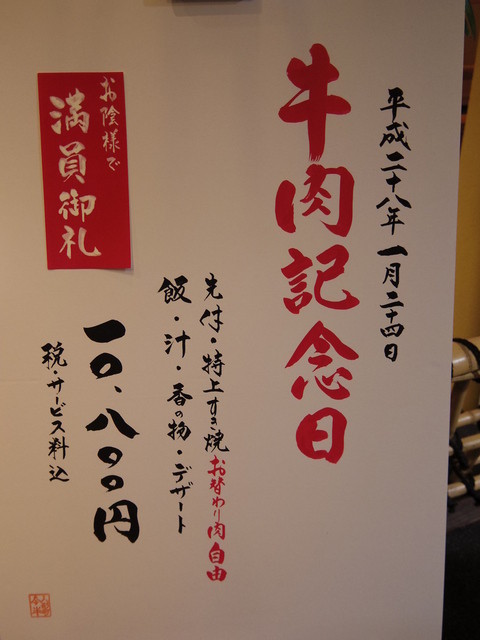 平成二十八年 一月二十四日
牛肉記念日
先付・特上すき焼 お替わり肉自由
飯・汁・香の物・デザート
一〇、八〇〇円
税・サービス料込
お陰様で
満員御礼